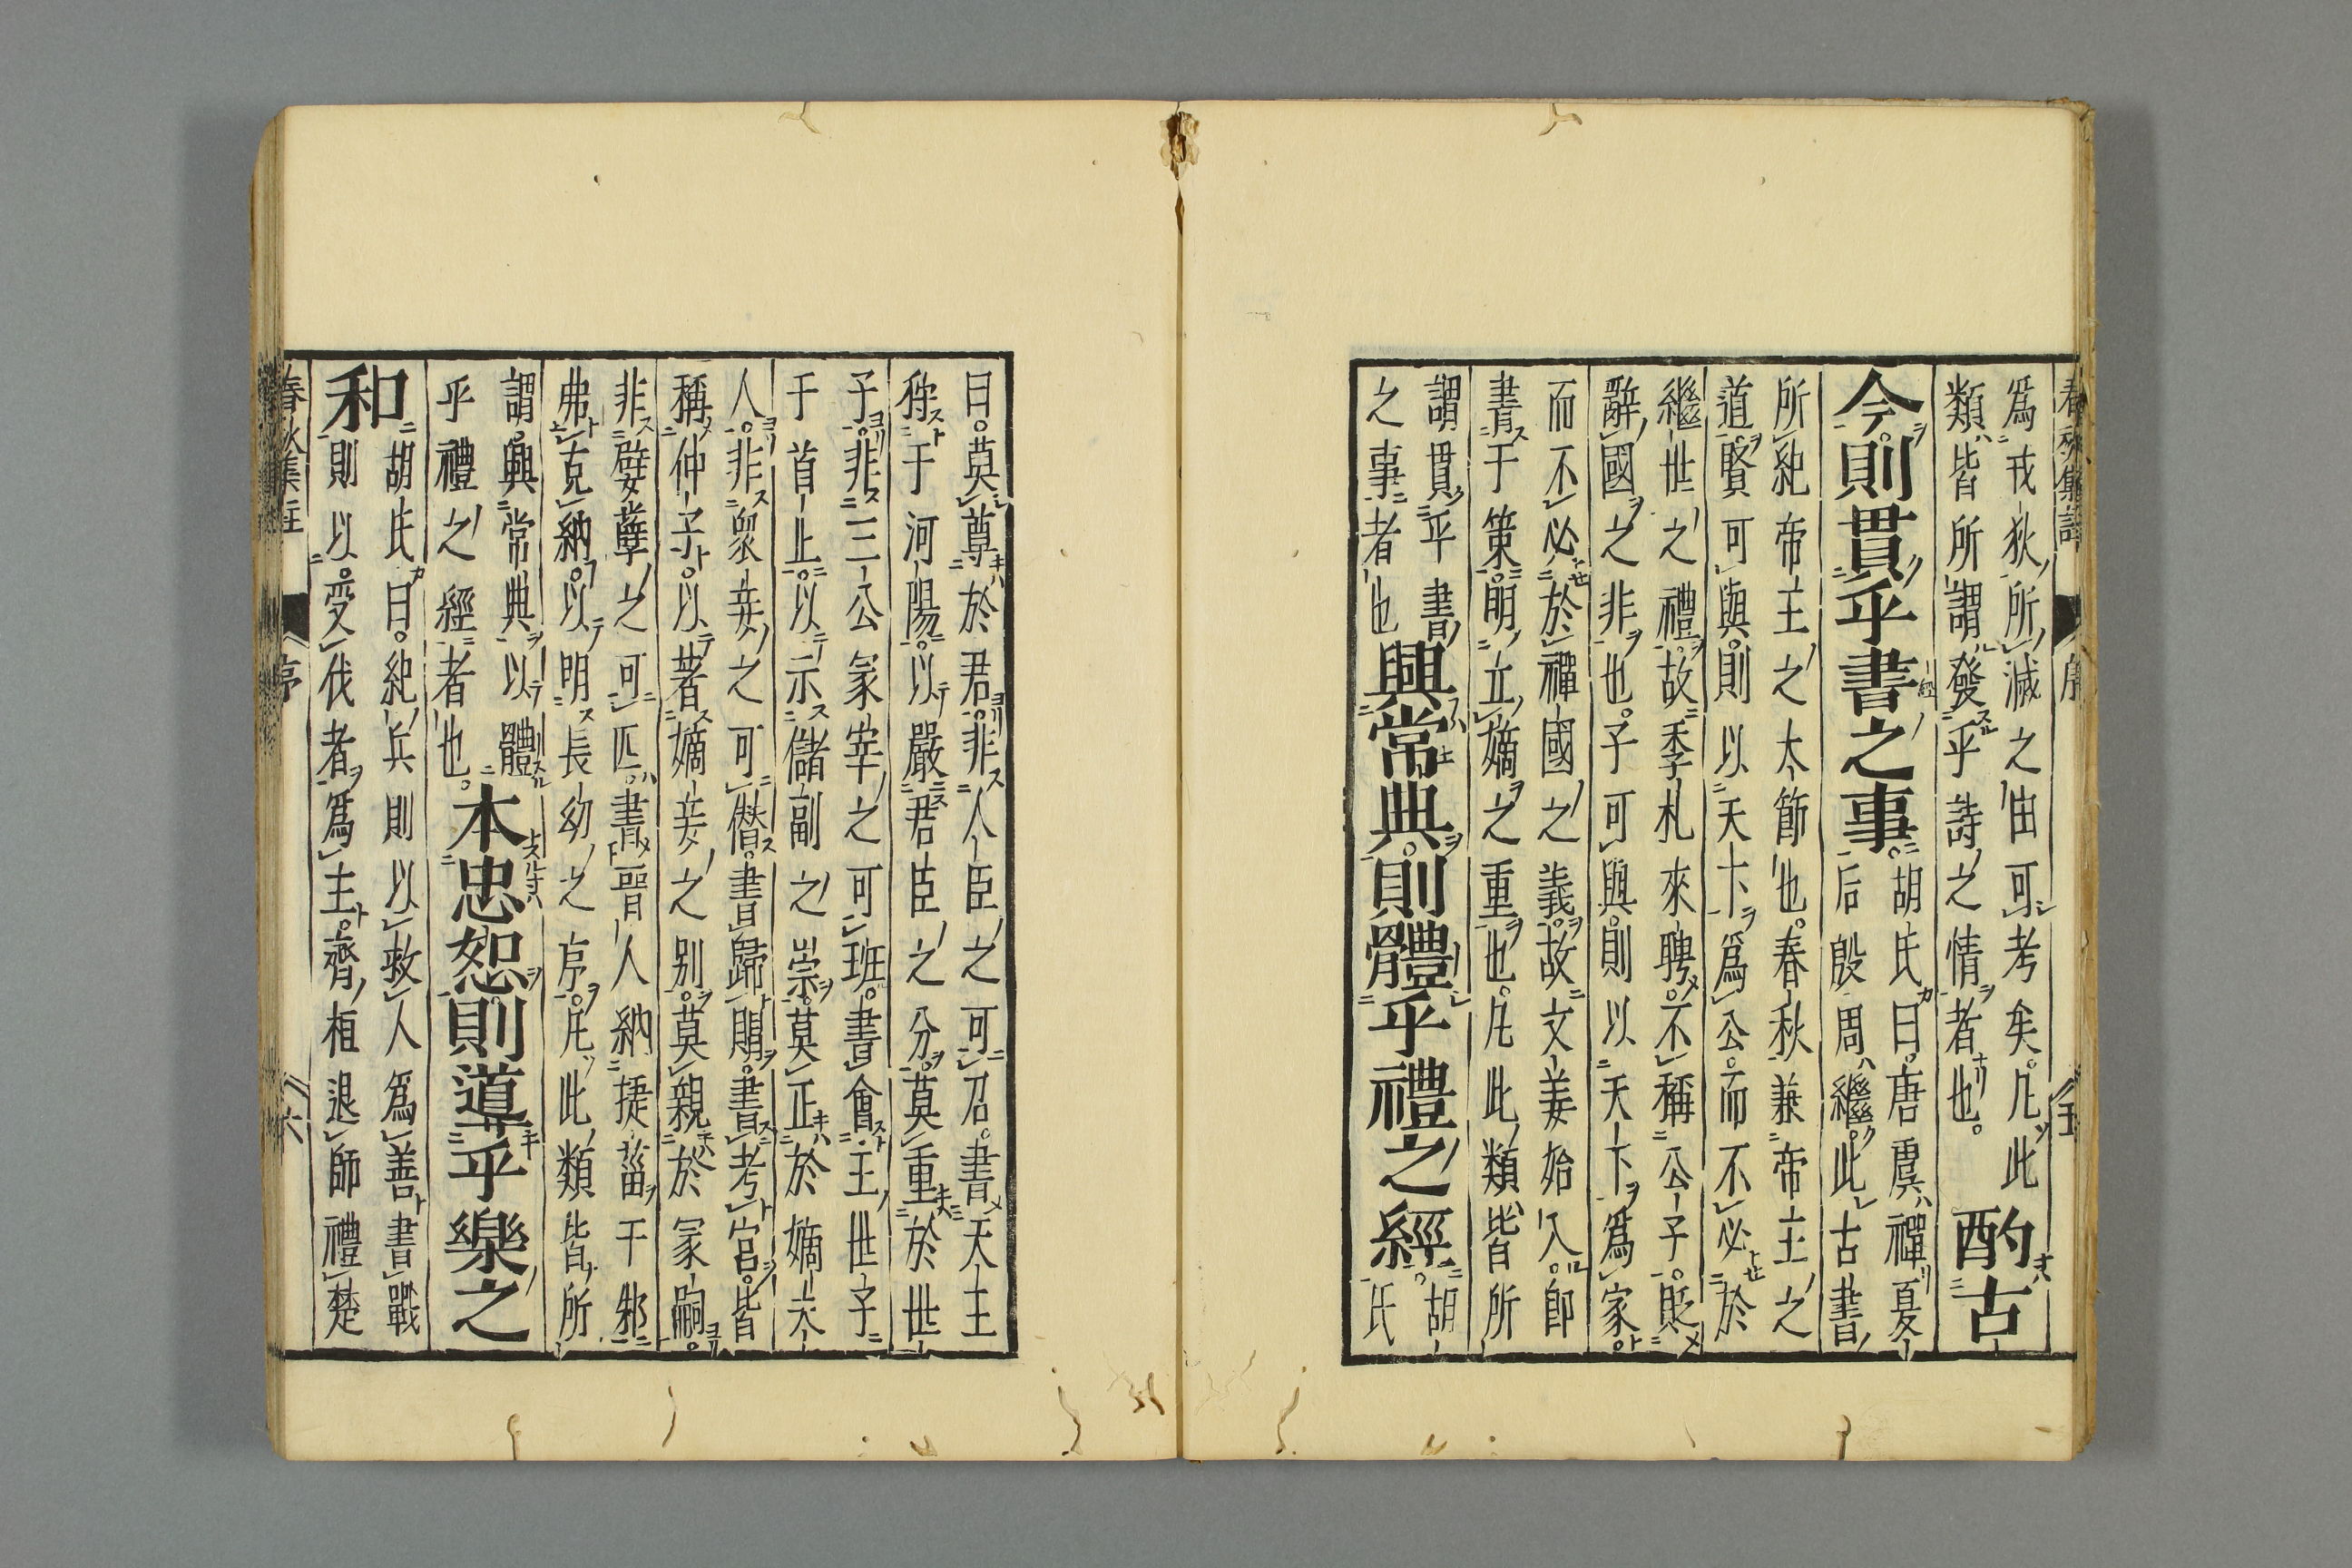 春秋集註 序 五
爲戎狄所滅之由可考矣。凢此
類皆所謂發乎詩之情者也。
酌古
今則貫乎書之事。
胡氏曰。唐虞禪夏
后殷周繼此古書
所紀帝王之大節也。春秋兼帝王之
道。賢可與。則以天下爲公。而不必於
繼世之禮。故季札來聘。不稱公子。貶
辭國之非也。子可與。則以天下爲家。
而不必於禪國之義。故文姜始入。即
書于策。明立嫡之重也。凢此類皆所
謂貫乎書
之事者也
興常典。則體乎禮之經。
胡
氏
曰。莫尊於君。非人臣之可召。書天王
狩于河陽。以嚴君臣之分。莫重於世
子。非三公冢宰之可班。書會王世子
于首止。以示儲副之崇。莫正於嫡夫
人。非衆妾之可僭。書歸賵。書考宮。皆
稱仲子。以著嫡妾之别。莫親於冢嗣。
非嬖孽之可匹。書晉人納捷菑于邾
弗克納。以明長幼之序。凢此類皆所
謂興常典以體
乎禮之經者也。
本忠恕則道乎樂之
和
胡氏曰。紀兵則以救人爲善書戰
則以受伐者爲主。齊桓退師禮楚
春秋集註 序 六